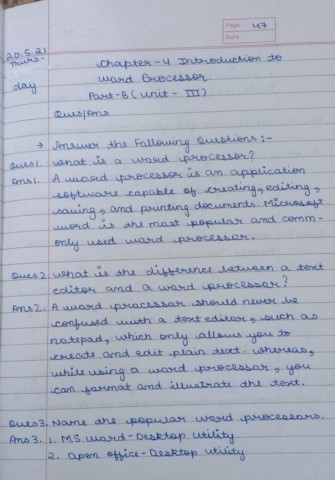 Page: 47
Date:
20.5.21
Thurs-
day
Chapter-4 Introduction to
Word Processor
Part-B (Unit - III)
Ques/Ans
→ Answer the Following Questions :-
Ques 1. What is a word processor?
Ans 1. A word processor is an application
software capable of creating, editing,
saving, and printing documents. Microsoft
word is the most popular and comm-
only used word processor.
Ques 2. What is the difference between a text
editor and a word processor?
Ans 2. A word processor should never be
confused with a text editor, such as
notepad, which only allows you to
create and edit plain text. Whereas,
while using a word processor, you
can format and illustrate the text.
Ques 3. Name the popular word processors.
Ans 3. 1. MS Word-Desktop Utility
2. Open office-Desktop Utility